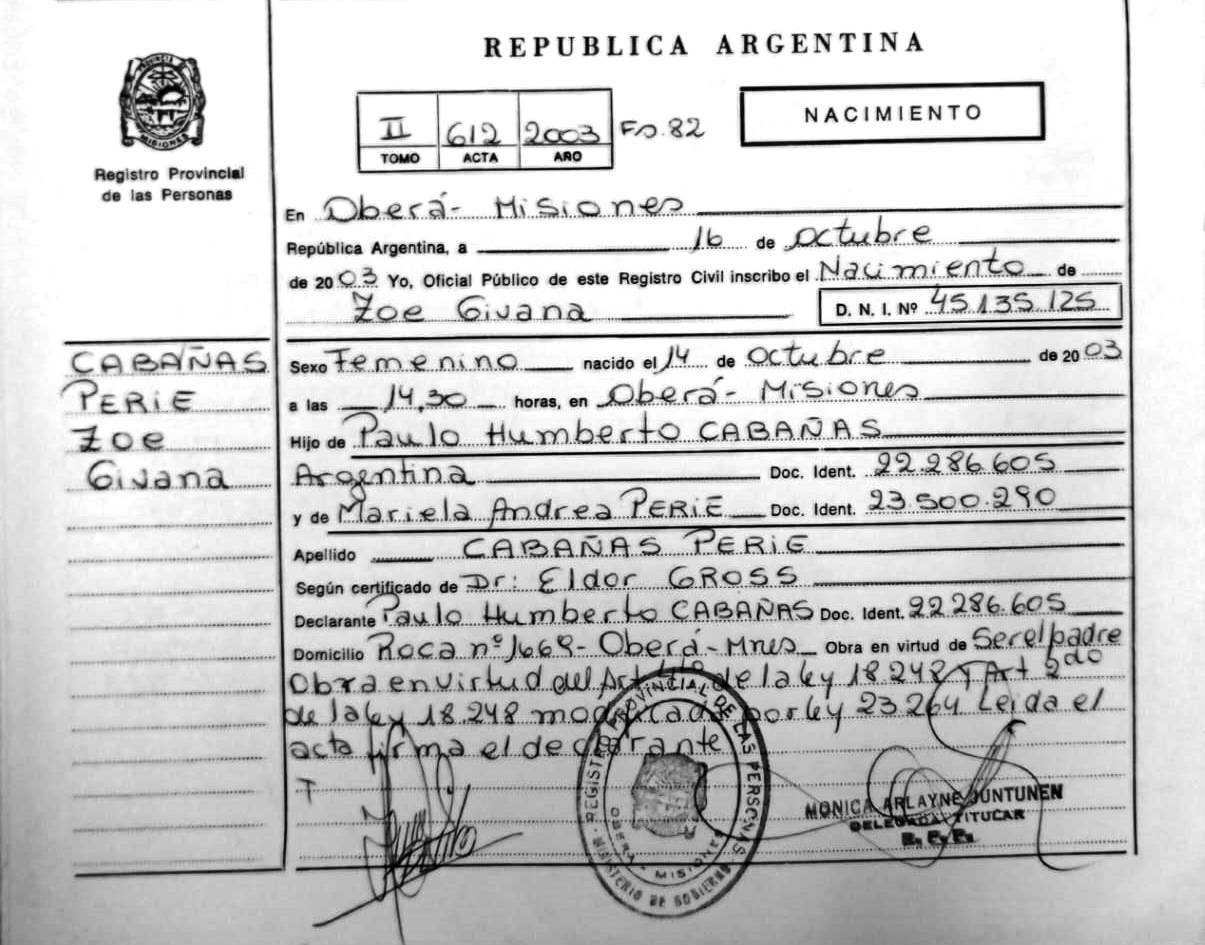 REPUBLICA ARGENTINA
PROVINCIA DE MISIONES
Registro Provincial
de las Personas
II 612 2003 Fo. 82
TOMO ACTA AÑO
NACIMIENTO
En Oberá - Misiones
República Argentina, a 16 de octubre
de 2003 Yo, Oficial Público de este Registro Civil inscribo el Nacimiento de
Zoe Givana D. N. I. Nº 45.135.125
CABAÑAS
PERIE
Zoe
Givana
Sexo Femenino nacido el 14 de octubre de 2003
a las 14,30 horas, en Oberá - Misiones
Hijo de Paulo Humberto CABAÑAS
Argentina Doc. Ident. 22.286.605
y de Mariela Andrea PERIE Doc. Ident. 23.500.290
Apellido CABAÑAS PERIE
Según certificado de Dr: Eldor GROSS
Declarante Paulo Humberto CABAÑAS Doc. Ident. 22.286.605
Domicilio Roca nº 1668 - Oberá - Mnes Obra en virtud de Ser el padre
Obra en virtud del Art de la ley 18.248 Y Art 2do
de la ley 18.248 modificada por ley 23.264 Leida el
acta firma el declarante
REGISTRO PROVINCIAL DE LAS PERSONAS
OBERA - MISIONES
MINISTERIO DE GOBIERNO
MONICA ARLAYNE JUNTUNEN
DELEGADA TITULAR
R. P. P.